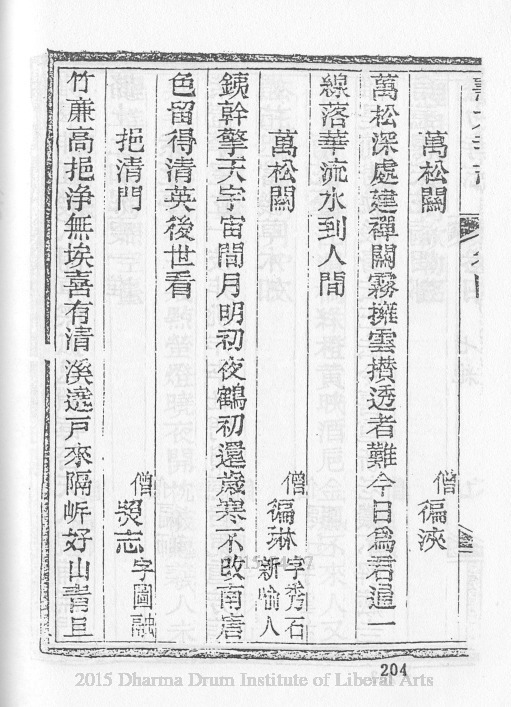 萬松關 僧徧浹
萬松深處建禪關霧擁雲攅透者難今日爲君通一
線落華流水到人間
萬松關 僧徧琳 字秀石
新喻人
銕幹擎天宇宙間月明初夜鶴初還歲寒不改南唐
色留得清英後世看
挹清門 僧志 字圖融
竹廉高挹浄無埃喜有清溪遶戸來隔岍好山青且
204
2015 Dharma Drum Institute of Liberal Arts